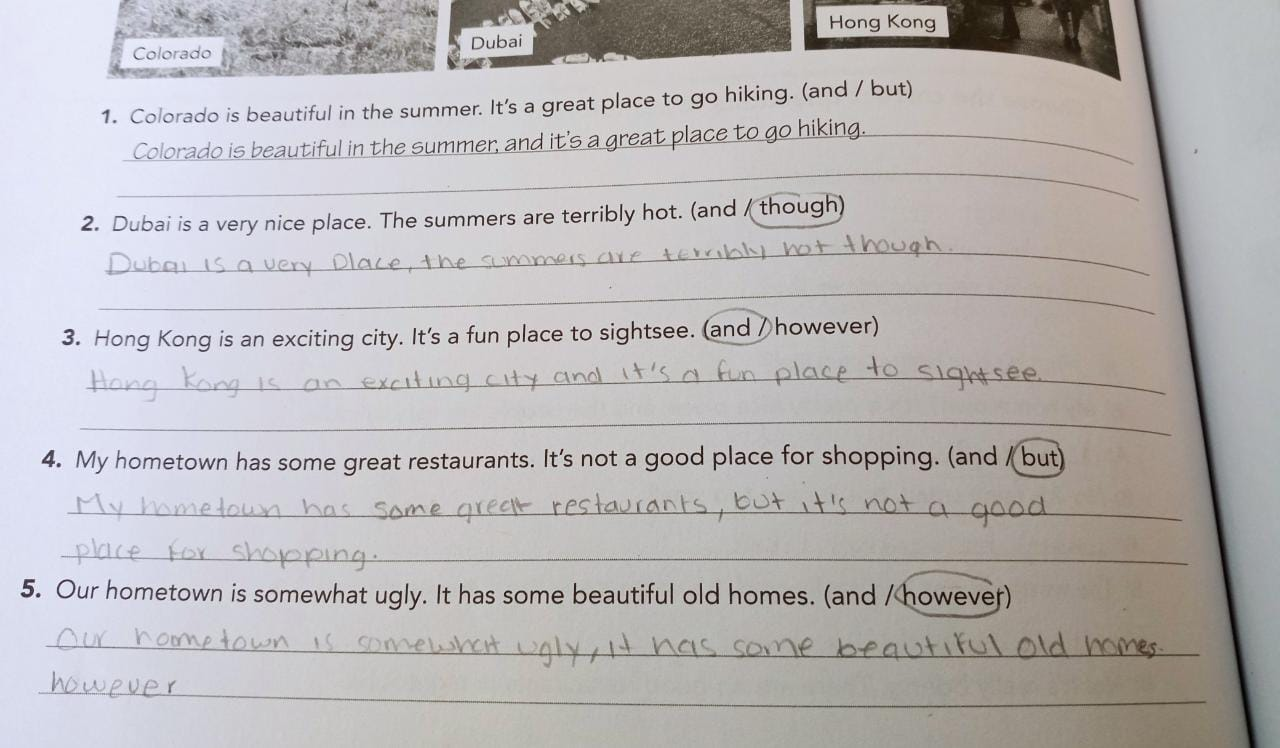 Colorado
Dubai
Hong Kong
1. Colorado is beautiful in the summer. It's a great place to go hiking. (and / but)
Colorado is beautiful in the summer, and it's a great place to go hiking.
2. Dubai is a very nice place. The summers are terribly hot. (and / though)
Dubai is a very Place, the summers are terribly hot though.
3. Hong Kong is an exciting city. It's a fun place to sightsee. (and / however)
Hong Kong is an exciting city and it's a fun place to sightsee.
4. My hometown has some great restaurants. It's not a good place for shopping. (and / but)
My hometown has some great restaurants, but it's not a good
place for shopping.
5. Our hometown is somewhat ugly. It has some beautiful old homes. (and / however)
Our hometown is somewhat ugly, it has some beautiful old homes.
however